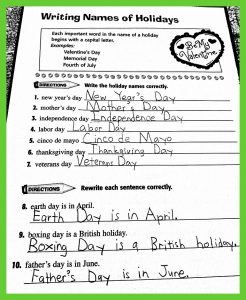 Writing Names of Holidays
Each important word in the name of a holiday
begins with a capital letter.
Examples:
Valentine's Day
Memorial Day
Fourth of July
Be My
Valentine
DIRECTIONS Write the holiday names correctly.
1. new year's day New Year's Day
2. mother's day Mother's Day
3. independence day Independence Day
4. labor day Labor Day
5. cinco de mayo Cinco de Mayo
6. thanksgiving day Thanksgiving Day
7. veterans day Veterans Day
DIRECTIONS Rewrite each sentence correctly.
8. earth day is in April.
Earth Day is in April.
9. boxing day is a British holiday.
Boxing Day is a British holiday.
10. father's day is in June.
Father's Day is in June.